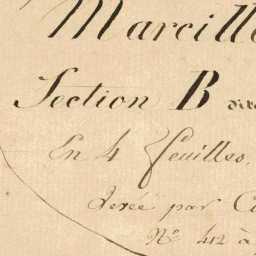 Marcill
Section B dite
En 4 feuilles,
Levée par C
N° 412 à